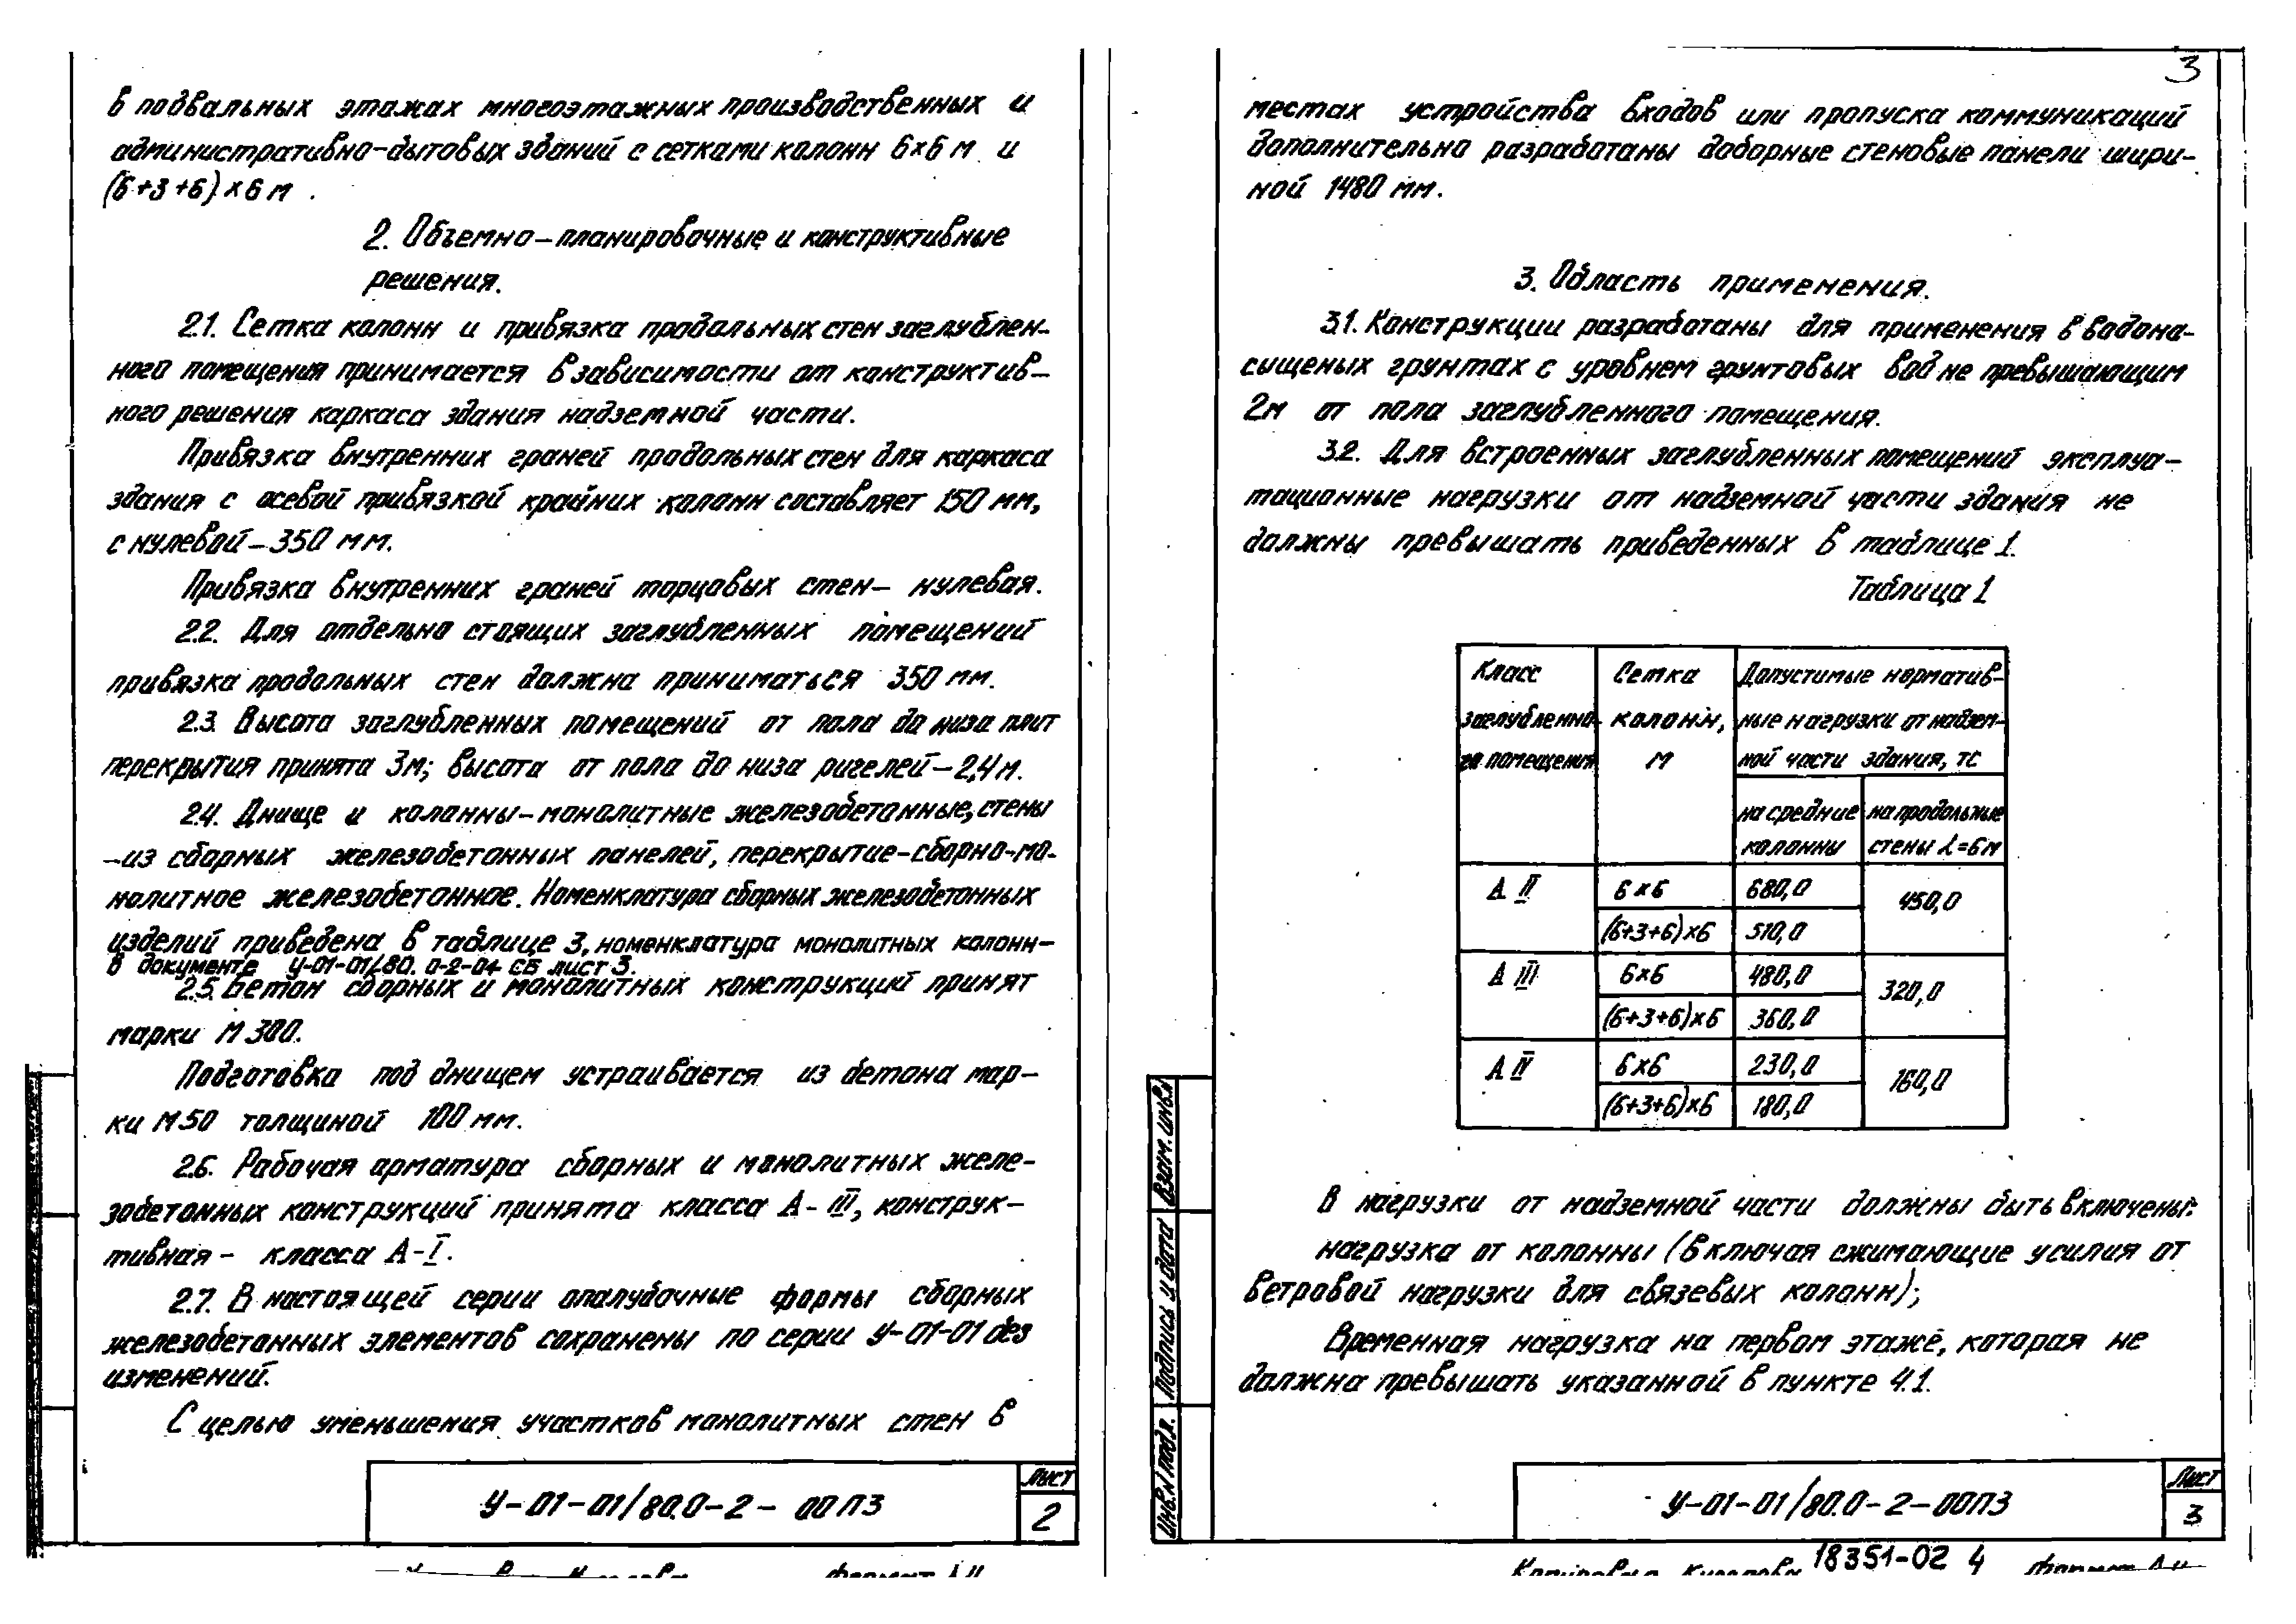 в подвальных этажах многоэтажных производственных и
административно-бытовых зданий с сетками колонн 6×6 м и
(6+3+6)×6 м.
2. Объемно-планировочные и конструктивные
решения.
2.1. Сетка колонн и привязка продольных стен заглублен-
ного помещения принимается в зависимости от конструктив-
ного решения каркаса здания надземной части.
Привязка внутренних граней продольных стен для каркаса
здания с осевой привязкой крайних колонн составляет 150 мм,
с нулевой-350 мм.
Привязка внутренних граней торцовых стен- нулевая.
2.2. Для отдельно стоящих заглубленных помещений
привязка продольных стен должна приниматься 350 мм.
2.3. Высота заглубленных помещений от пола до низа плит
перекрытия принята 3м; высота от пола до низа ригелей-2,4 м.
2.4. Днище и колонны-монолитные железобетонные, стены
-из сборных железобетонных панелей, перекрытие-сборно-мо-
нолитное железобетонное. Номенклатура сборных железобетонных
изделий приведена в таблице 3, номенклатура монолитных колонн-
в документе У-01-01/80. 0-2-04 СБ лист 3.
2.5. Бетон сборных и монолитных конструкций принят
марки М 300.
Подготовка под днищем устраивается из бетона мар-
ки М50 толщиной 100 мм.
2.6. Рабочая арматура сборных и монолитных желе-
зобетонных конструкций принята класса А-III, конструк-
тивная- класса А-I.
2.7. В настоящей серии опалубочные формы сборных
железобетонных элементов сохранены по серии У-01-01 без
изменений.
С целью уменьшения участков монолитных стен в
У-01-01/80.0-2-00ПЗ
Лист
2
3
местах устройства входов или пропуска коммуникаций
дополнительно разработаны доборные стеновые панели шири-
ной 1480 мм.
3. Область применения.
3.1. Конструкции разработаны для применения в водона-
сыщеных грунтах с уровнем грунтовых вод не превышающим
2м от пола заглубленного помещения.
3.2. Для встроенных заглубленных помещений эксплуа-
тационные нагрузки от надземной части здания не
должны превышать приведенных в таблице 1.
Таблица 1
Класс заглубленно- го помещения
Сетка колонн, м
Допустимые норматив- ные нагрузки от надзем- ной части здания, тс
на средние колонны
на продольные стены L=6м
А II 6×6 680,0 450,0
(6+3+6)×6 510,0
А III 6×6 480,0 320,0
(6+3+6)×6 360,0
А IV 6×6 230,0 160,0
(6+3+6)×6 180,0
В нагрузки от надземной части должны быть включены:
нагрузка от колонны (включая сжимающие усилия от
ветровой нагрузки для связевых колонн);
Временная нагрузка на первом этаже, которая не
должна превышать указанной в пункте 4.1.
Взам. инв.№
Подпись и дата
Инв.№ подл.
У-01-01/80.0-2-00ПЗ
Лист
3
18351-02 4